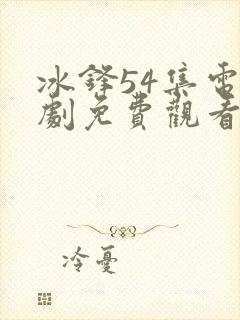 冰鋒54集電
劇免費觀看
冷憂